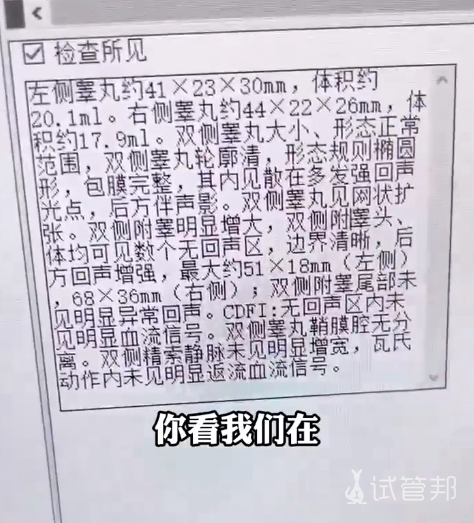 检查所见
左侧睾丸约41×23×30mm，体积约
20.1ml。右侧睾丸约44×22×26mm，体
积约17.9ml。双侧睾丸大小、形态正常
范围，双侧睾丸轮廓清，形态规则椭圆
形，包膜完整，其内见散在多发强回声
光点，后方伴声影。双侧睾丸见网状扩
张。双侧附睾明显增大，双侧附睾头、
体均可见数个无回声区，边界清晰，后
方回声增强，最大约51×18mm（左侧）
，68×36mm（右侧）；双侧附睾尾部未
见明显异常回声。CDFI:无回声区内未
见明显血流信号。双侧睾丸鞘膜腔无分
离。双侧精索静脉未见明显增宽，瓦氏
动作内未见明显返流血流信号。
你看我们在
试管邦